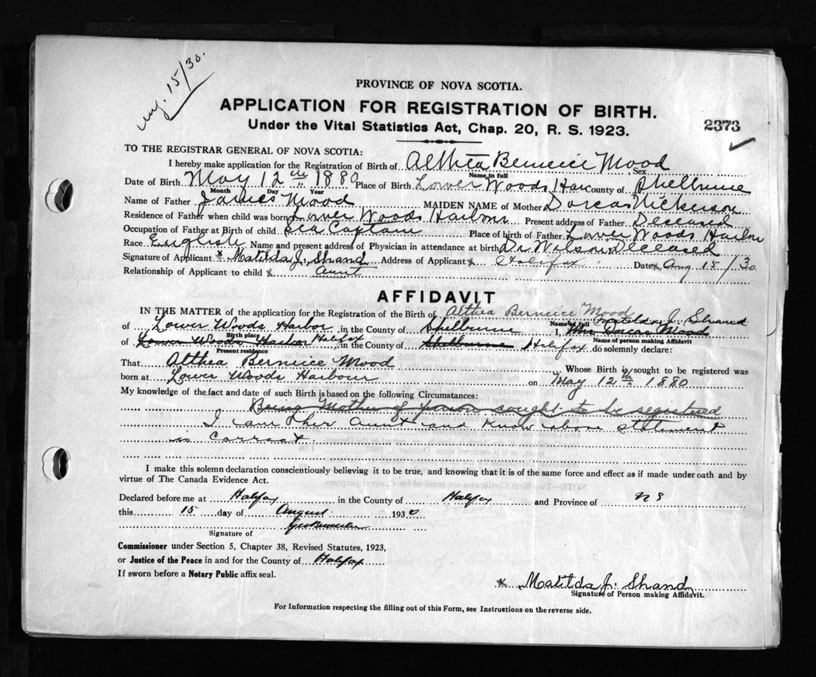 Aug. 15/30.
PROVINCE OF NOVA SCOTIA.
APPLICATION FOR REGISTRATION OF BIRTH.
Under the Vital Statistics Act, Chap. 20, R. S. 1923.
2373
TO THE REGISTRAR GENERAL OF NOVA SCOTIA:
I hereby make application for the Registration of Birth of Althea Berneice Mood
Name in full Sex
Date of Birth May 12th 1880 Place of Birth Lower Woods Har County of Shelburne
Month Day Year
Name of Father James Mood MAIDEN NAME of Mother Dorcas Nickerson
Residence of Father when child was born Lower Woods Harbour Present address of Father Deceased
Occupation of Father at Birth of child Sea Captain Place of birth of Father Lower Woods Harbor
Race English Name and present address of Physician in attendance at birth Dr Wilson Deceased
Signature of Applicant x Matilda J. Shand Address of Applicant x Halifax Date x Aug 15/30
Relationship of Applicant to child x Aunt
AFFIDAVIT
IN THE MATTER of the application for the Registration of the Birth of Althea Berneice Mood
Name in full Matilda J. Shand
of Lower Woods Harbor in the County of Shelburne I, Mrs Dorcas Mood
Birth place Name of person making Affidavit
of Lower Woods Harbor Halifax in the County of Shelburne Halifax do solemnly declare:
Present residence
That Althea Berneice Mood Whose Birth is sought to be registered was
born at Lower Woods Harbour on May 12th 1880
My knowledge of the fact and date of such Birth is based on the following Circumstances:
Being Mother of person sought to be registered
I am her Aunt and know above statement
is correct.
I make this solemn declaration conscientiously believing it to be true, and knowing that it is of the same force and effect as if made under oath and by
virtue of The Canada Evidence Act.
Declared before me at Halifax in the County of Halifax and Province of N S
this 15 day of August 1930
Signature of
Commissioner under Section 5, Chapter 38, Revised Statutes, 1923,
or Justice of the Peace in and for the County of Halifax
If sworn before a Notary Public affix seal.
x Matilda J. Shand
Signature of Person making Affidavit.
For Information respecting the filling out of this Form, see Instructions on the reverse side.